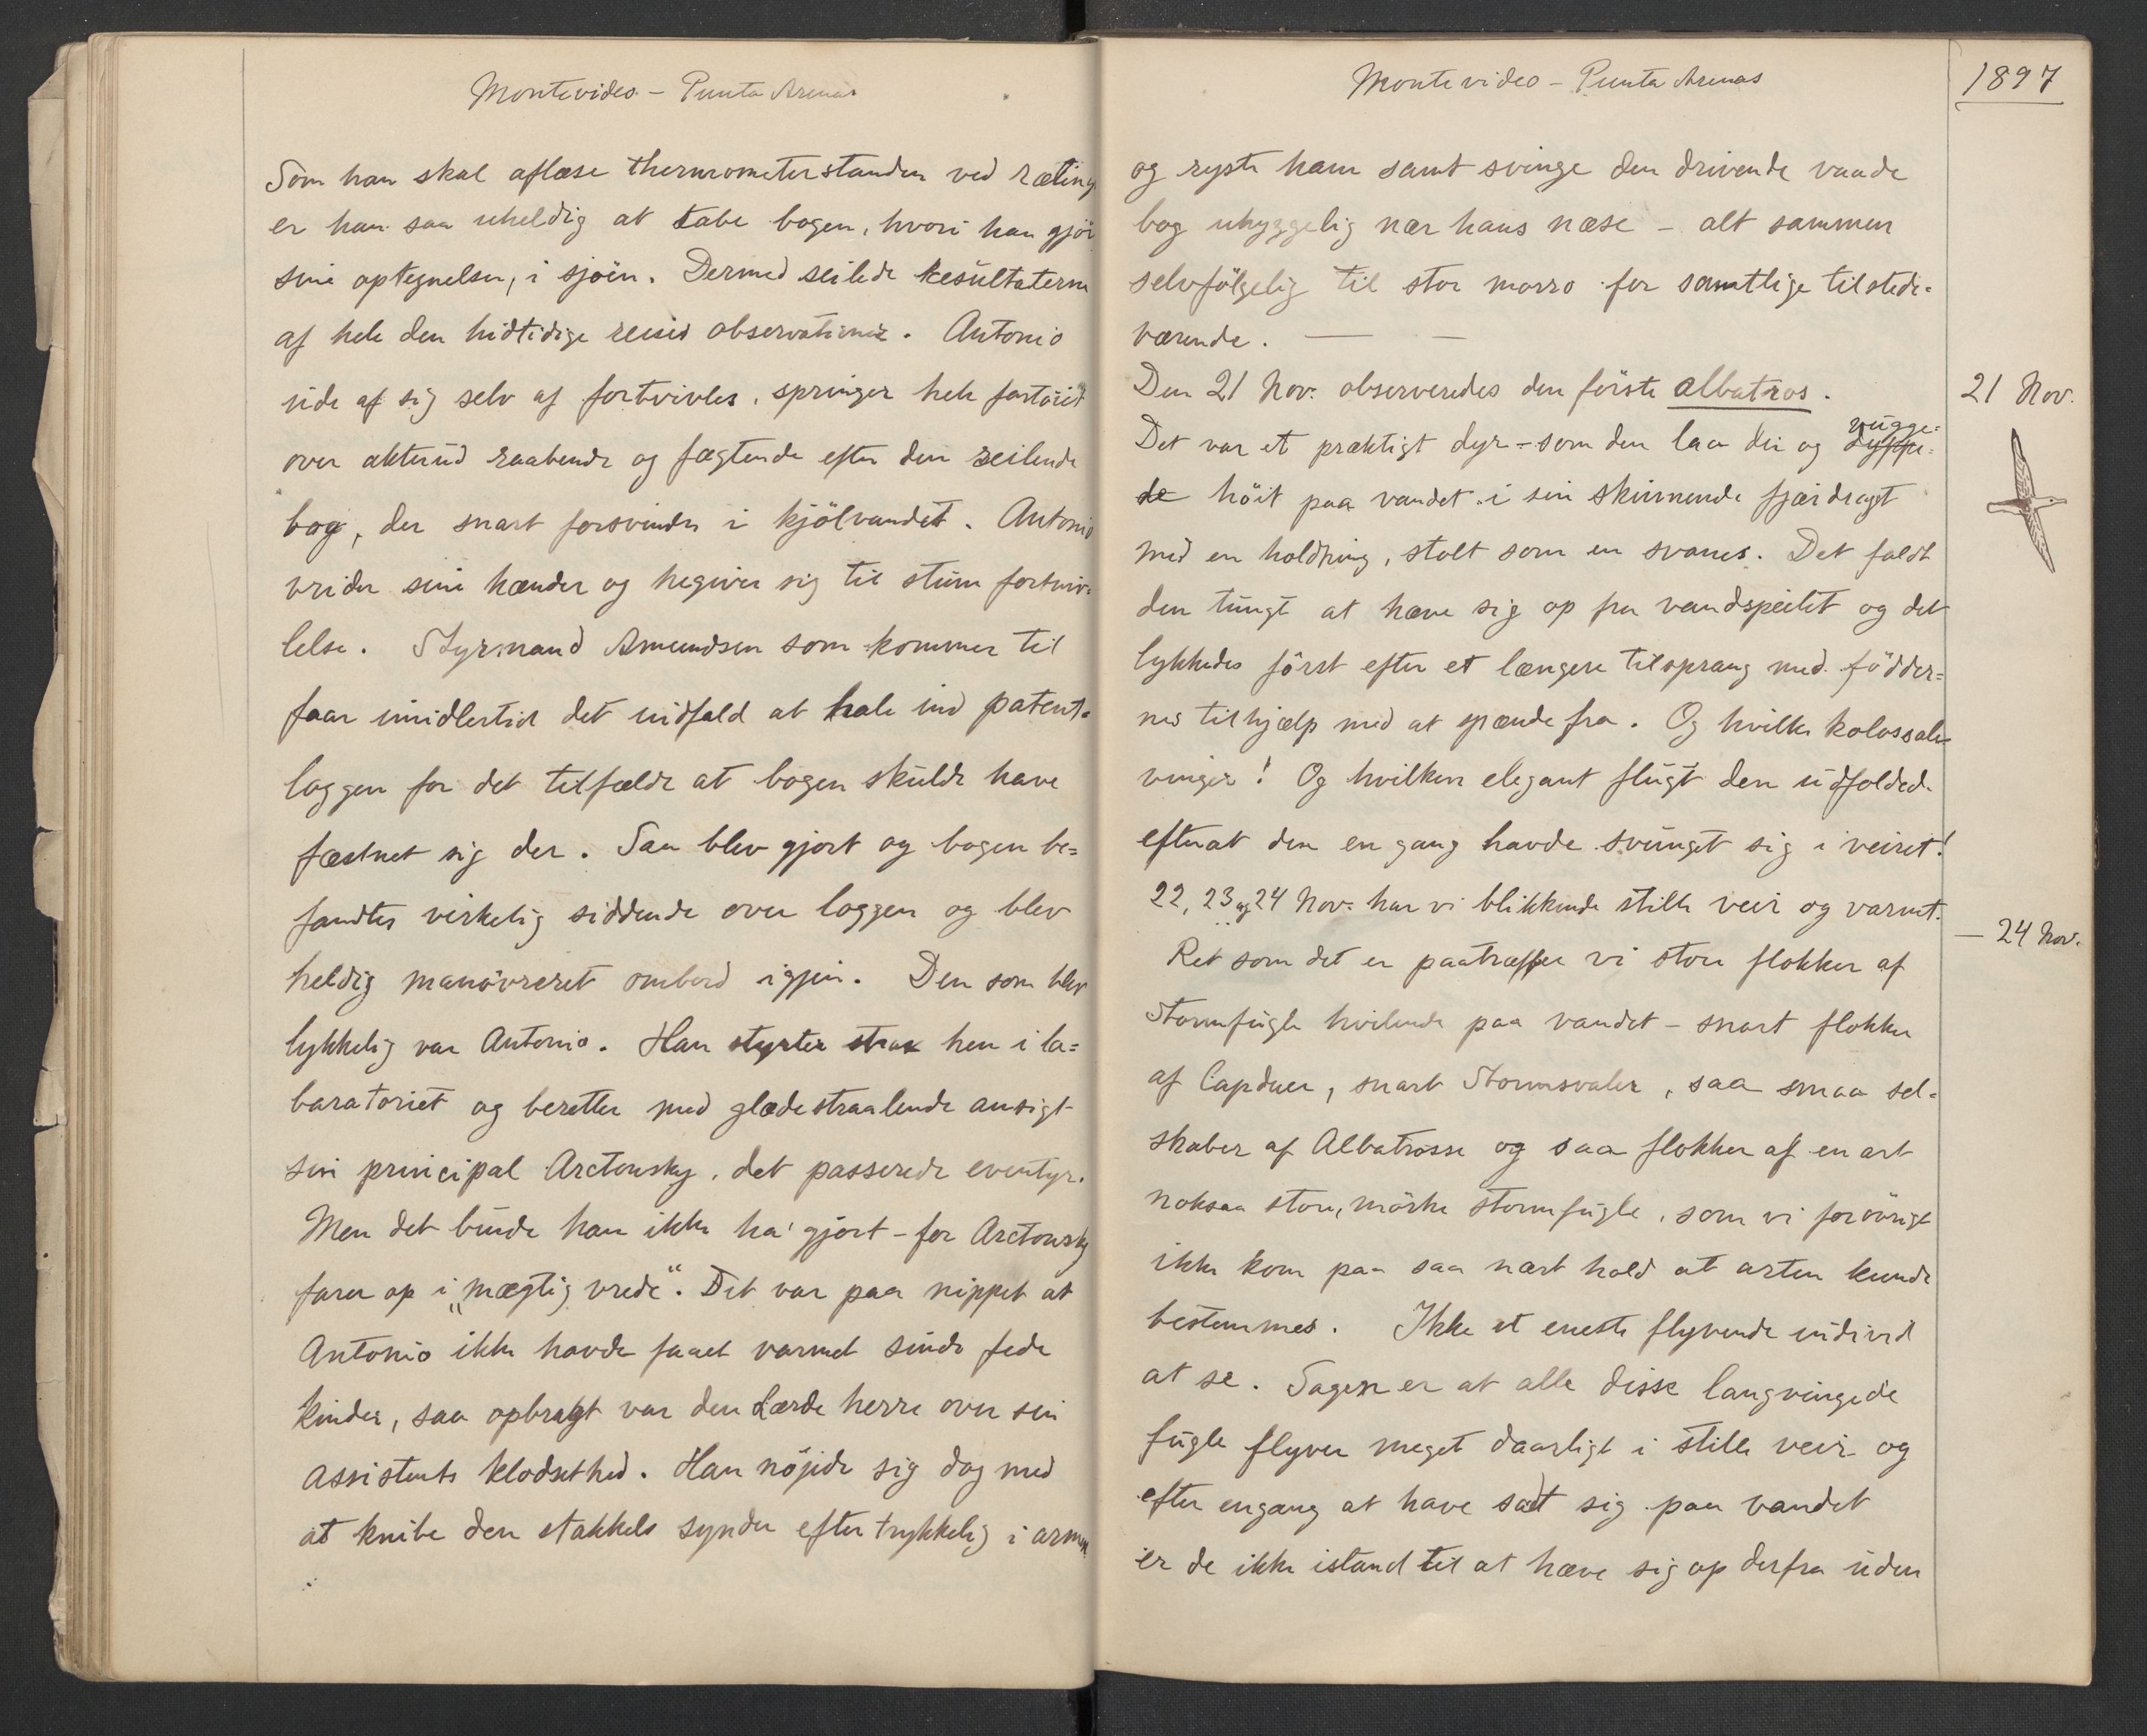 Montevideo – Punta Arenas
Som han skal aflæse thermometerstanden ved ræling
er han saa uheldig at tabe bogen, hvori han gjör
sine optegnelser, i sjöen. Dermed seilede resultaterne
af hele den hidtidige reises observationer. Antonio
ude af sig selv af fortvivles, springer hele fartöiet
over akterud raabende og fægtende efter den seilende
bog, der snart forsvinder i kjölvandet. Antonio
vrider sine hænder og hegiver sig til stum fortviv-
lelse. Styrmand Amundsen som kommer til
faar imidlertid det indfald at hale ind patent-
loggen for det tilfælde at bogen skulde have
fæstnet sig der. Saa blev gjort og bogen be-
fandtes virkelig siddende over loggen og blev
heldig manövreret ombord igjen. Den som blev
lykkelig var Antonio. Han styrter strax hen i la-
baratoriet og beretter med glædestraalende ansigt
sin principal Arctowsky, det passerede eventyr.
Men det burde han ikke ha' gjort – for Arctowsky
farer op i „mægtig vrede“. Det var paa nippet at
Antonio ikke havde faaet varmet sinde fede
kinder, saa opbragt var den Lærde herre over sin
assistents klodsethed. Han nöjede sig dog med
at knibe den stakkels synder eftertrykkelig i armen
Montevideo – Punta Arenas
1897
og ryste ham samt svinge den drivende vaade
bog uhyggelig nær hans næse – alt sammen
selvfölgelig til stor morro for samtlige tilstede-
værende. — –
Den 21 Nov. observeredes den förste albatros.
21 Nov.
Det var et præktigt dyr – som den laa der og vugge-
de höit paa vandet i sin skinnende fjærdragt
med en holdning, stolt som en svanes. Det faldt
den tungt at hæve sig op fra vandspeilet og det
lykkedes först efter et længere tilsprang med födder-
nes tilhjælp med at spænde fra. Og hvilke kolossale
vinger! Og hvilken elegant flugt den udfoldede
efterat den en gang havde svunget sig i veiret!
22, 23 og 24 Nov. har vi blikkende stille veir og varmt.
— 24 Nov.
Ret som det er paatræffer vi store flokker af
Stormfugle hvilende paa vandet – snart flokker
af Capduer, snart Stormsvaler, saa smaa sel-
skaber af Albatrosse og saa flokker af en art
noksaa store, mörke stormfugle, som vi forövrigt
ikke kom paa saa nært hold at arten kunde
bestemmes. Ikke et eneste flyvende individ
at se. Sagen er at alle disse langvingede
fugle flyver meget daarligt i stille veir og
efter engang at have sat sig paa vandet
er de ikke istand til at hæve sig op derfra uden